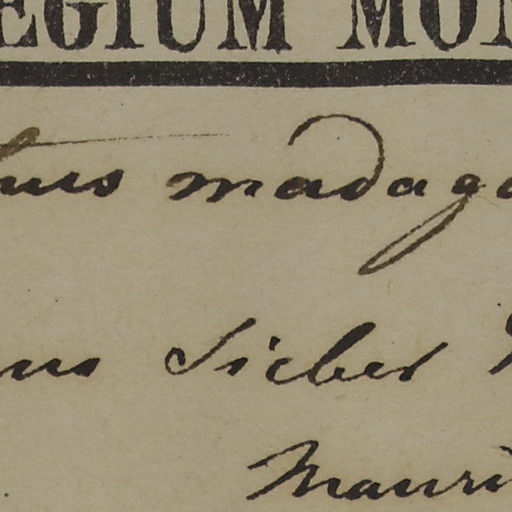 EGIUM MON
tus madaga
us Sieber
Mauri